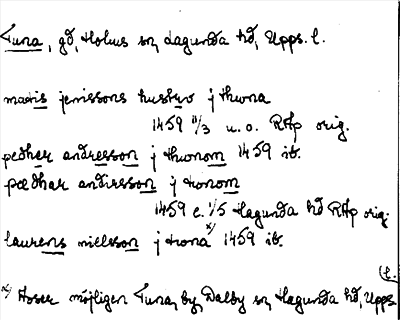 Tuna, gd, Holms sn, Lagunda hd, Upps. l.
matis jenissons hustrv j thwna
1459 11/3 u.o. RAp orig.
pedhær andresson j thwnom 1459 ib.
pædhar andirsson j tvnom
1459 e. 1/5 Hagunda hd RAp orig.
laurens nielsson j tvna x) 1459 ib.
(l.
x) Avser möjligen Tuna, by, Dalby sn, Hagunda hd, Upps.